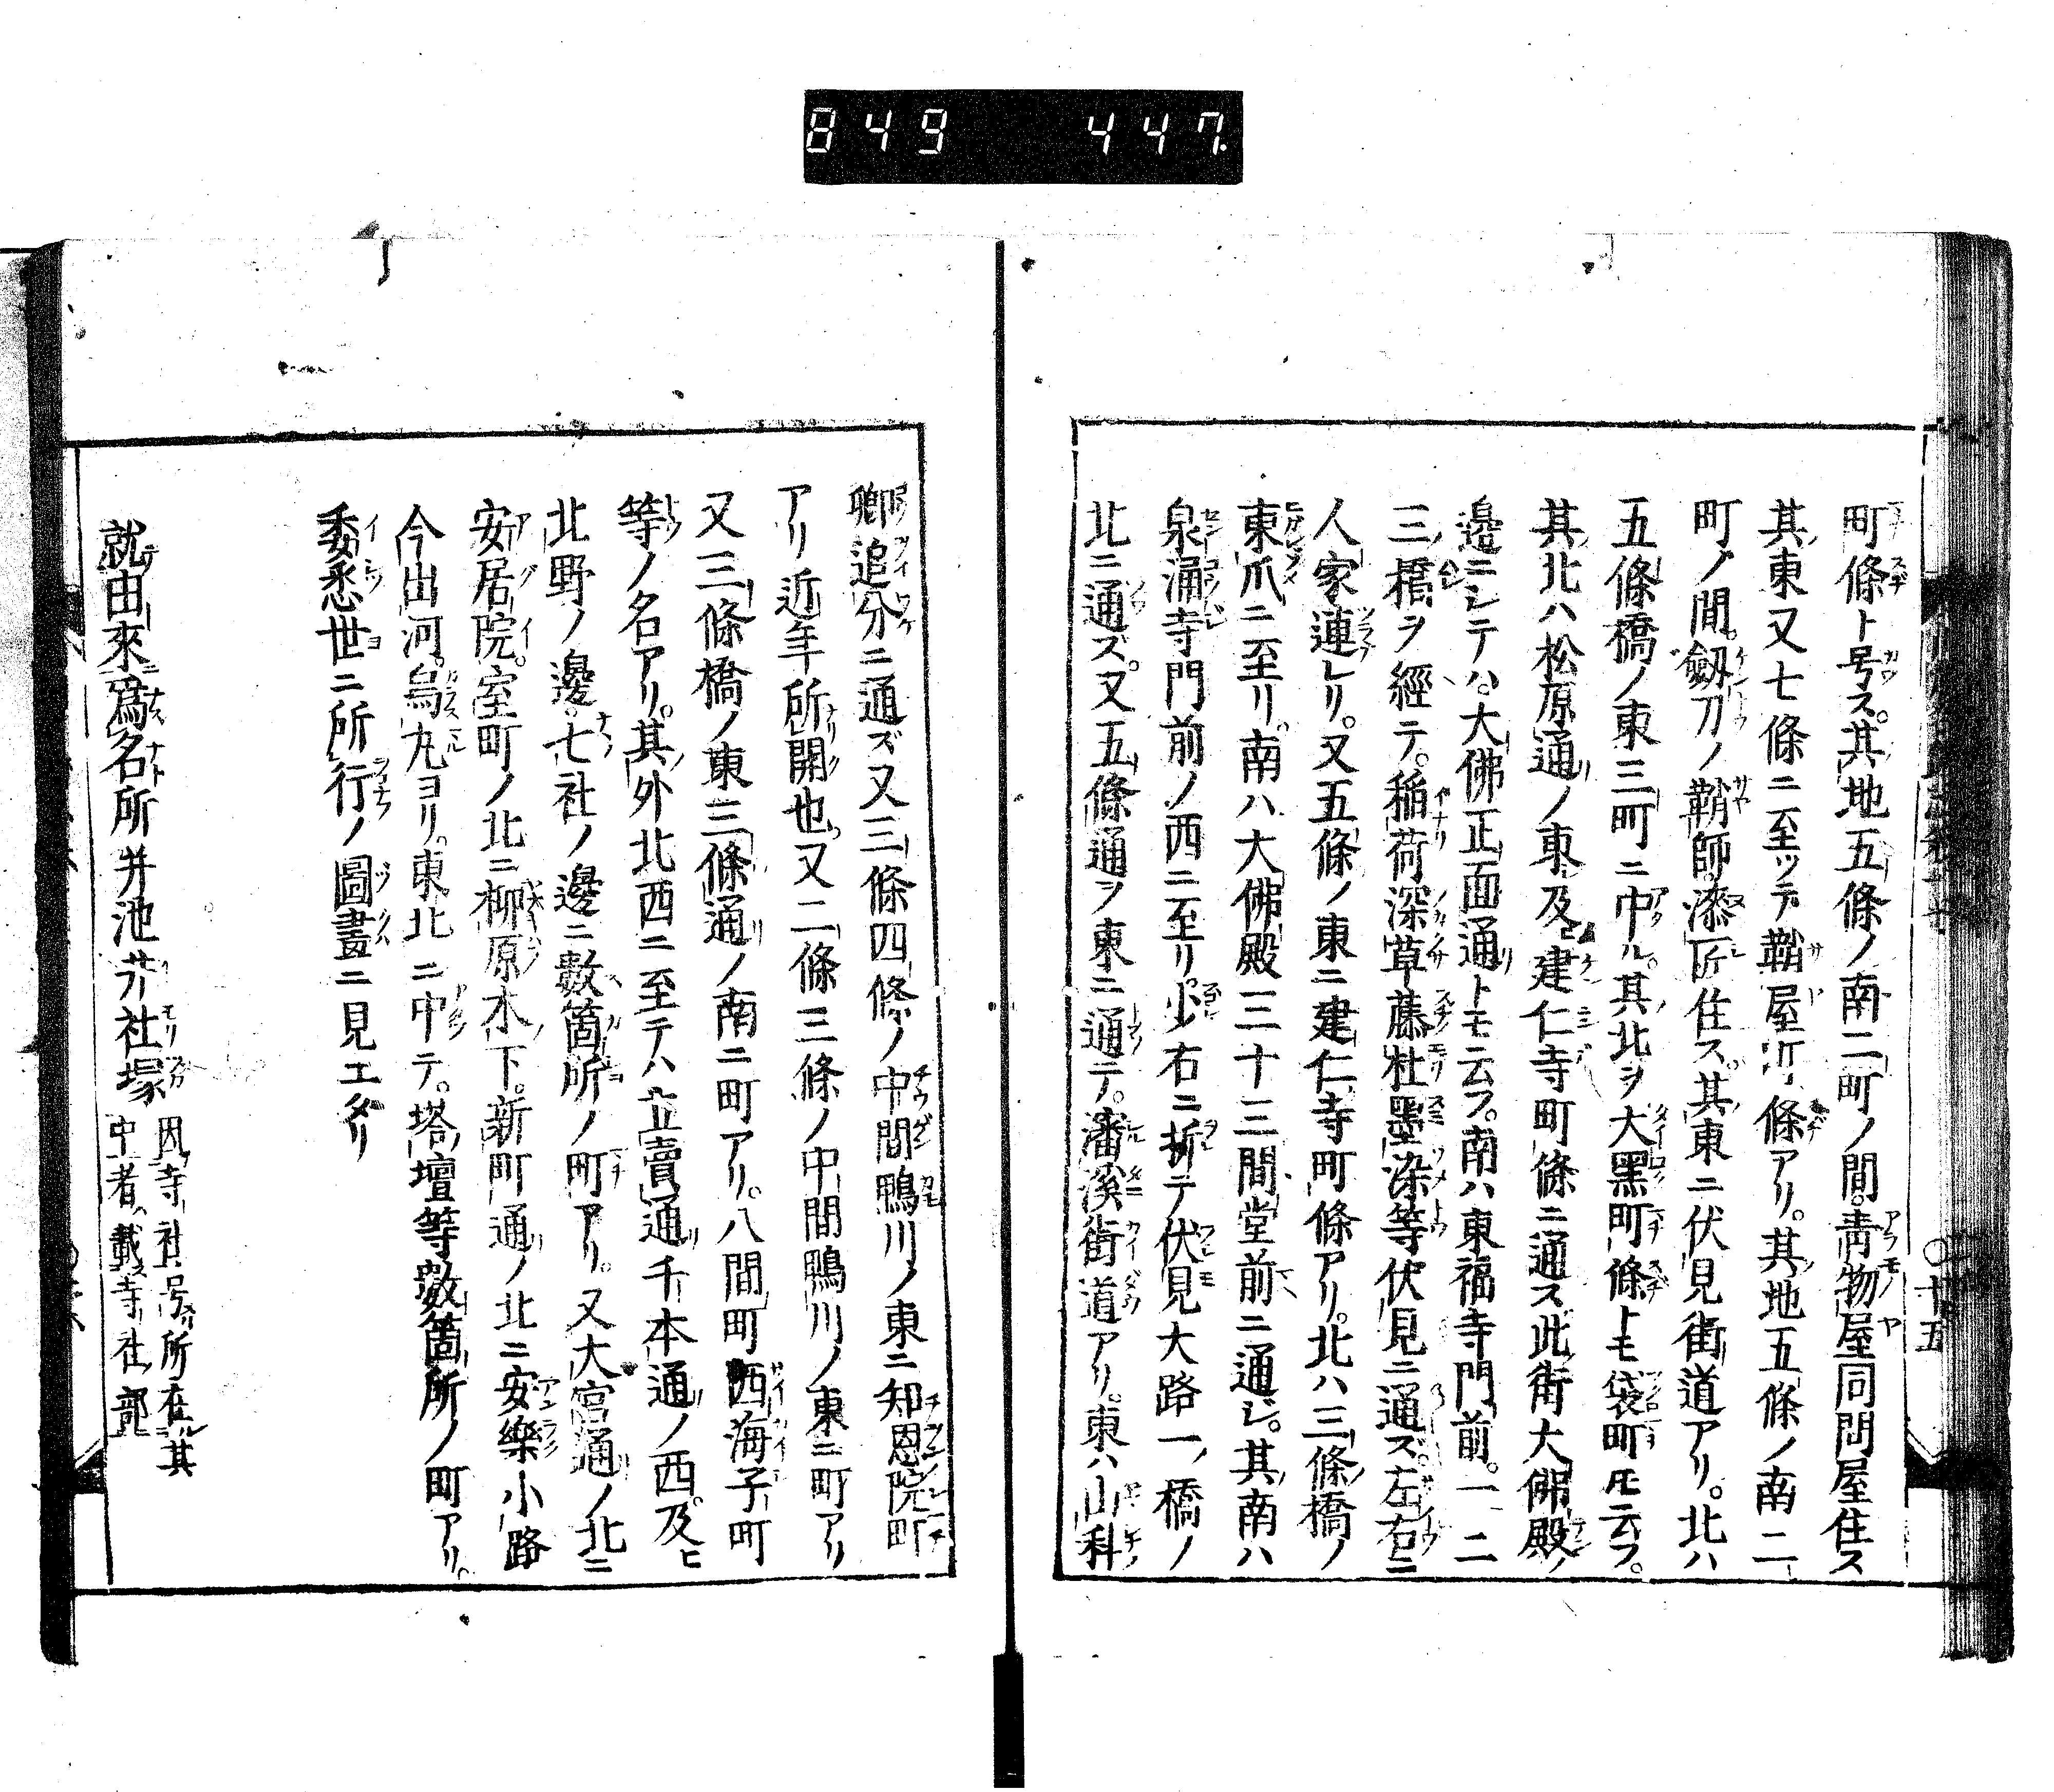 849 447
町條ト号ス。其地五條ノ南二町ノ間。靑物屋同問屋住ス
其東又七條ニ至ツテ鞘屋町條アリ。其地五條ノ南二
町ノ間。劔刀ノ鞘師漆匠住ス。其東ニ伏見街道アリ。北ハ
五條橋ノ東三町ニ中ル。其北ヲ大黑町條トモ袋町トモ云フ。
其北ハ松原通ノ東及ヒ建仁寺町條ニ通ス此街大佛殿ノ
邊ニシテハ。大佛正面通トモ云フ。南ハ東福寺門前。一二
三橋ヲ經テ。稲荷深草藤杜墨染等伏見ニ通ズ。左右ニ
人家連レリ。又五條ノ東ニ建仁寺町條アリ。北ハ三條橋ノ
東爪ニ至リ。南ハ大佛殿三十三間堂前ニ通ジ。其南ハ
泉涌寺門前ノ西ニ至リ。少右ニ折テ伏見大路一ノ橋ノ
北ニ通ズ。又五條通ヲ東ニ通テ。瀋溪街道アリ。東ハ山科
鄕追分ニ通ズ又三條四條ノ中間鴨川ノ東ニ知恩院町
アリ近年所開也。又二條三條ノ中間鴨川ノ東ニ町アリ
又三條橋ノ東三條通ノ南ニ町アリ。八間町西海子町
等ノ名アリ。其外北西ニ至テハ立賣通千本通ノ西。及ヒ
北野ノ邊。七社ノ邊ニ數箇所ノ町アリ。又大宮通ノ北ニ
安居院。室町ノ北ニ柳原木下。新町通ノ北ニ安樂小路
今出河。烏丸ヨリ。東北ニ中テ。塔壇等數箇所ノ町アリ。
委悉世ニ所行ノ圖畫ニ見エタリ
就由來爲名所并池井社塚
因寺社号所在其
中者載寺社部
〇十五